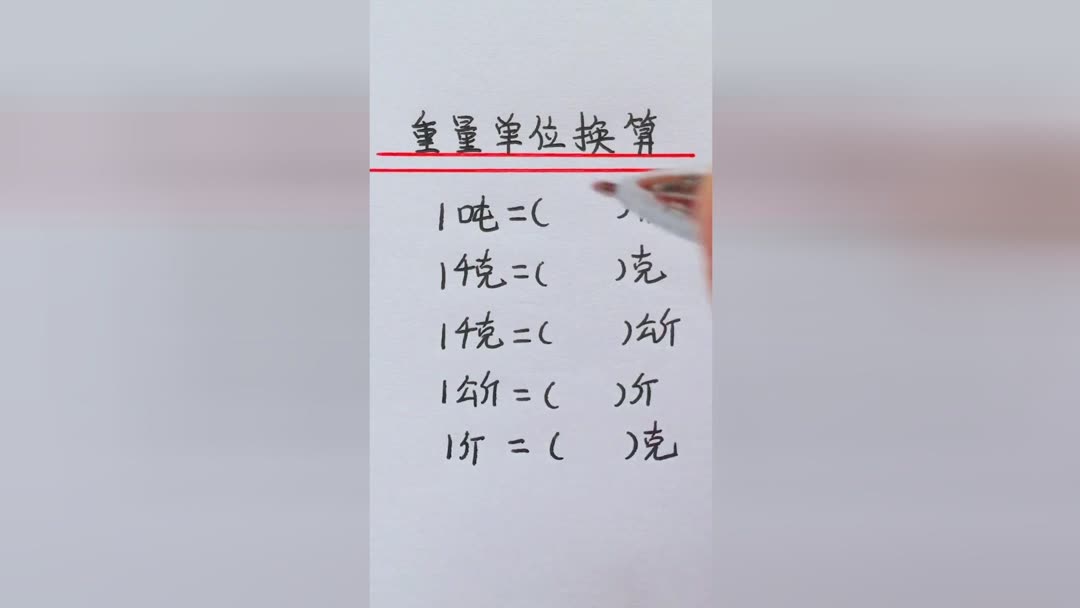 重量单位换算
1吨=( )
1千克=( )克
1千克=( )公斤
1公斤=( )斤
1斤=( )克